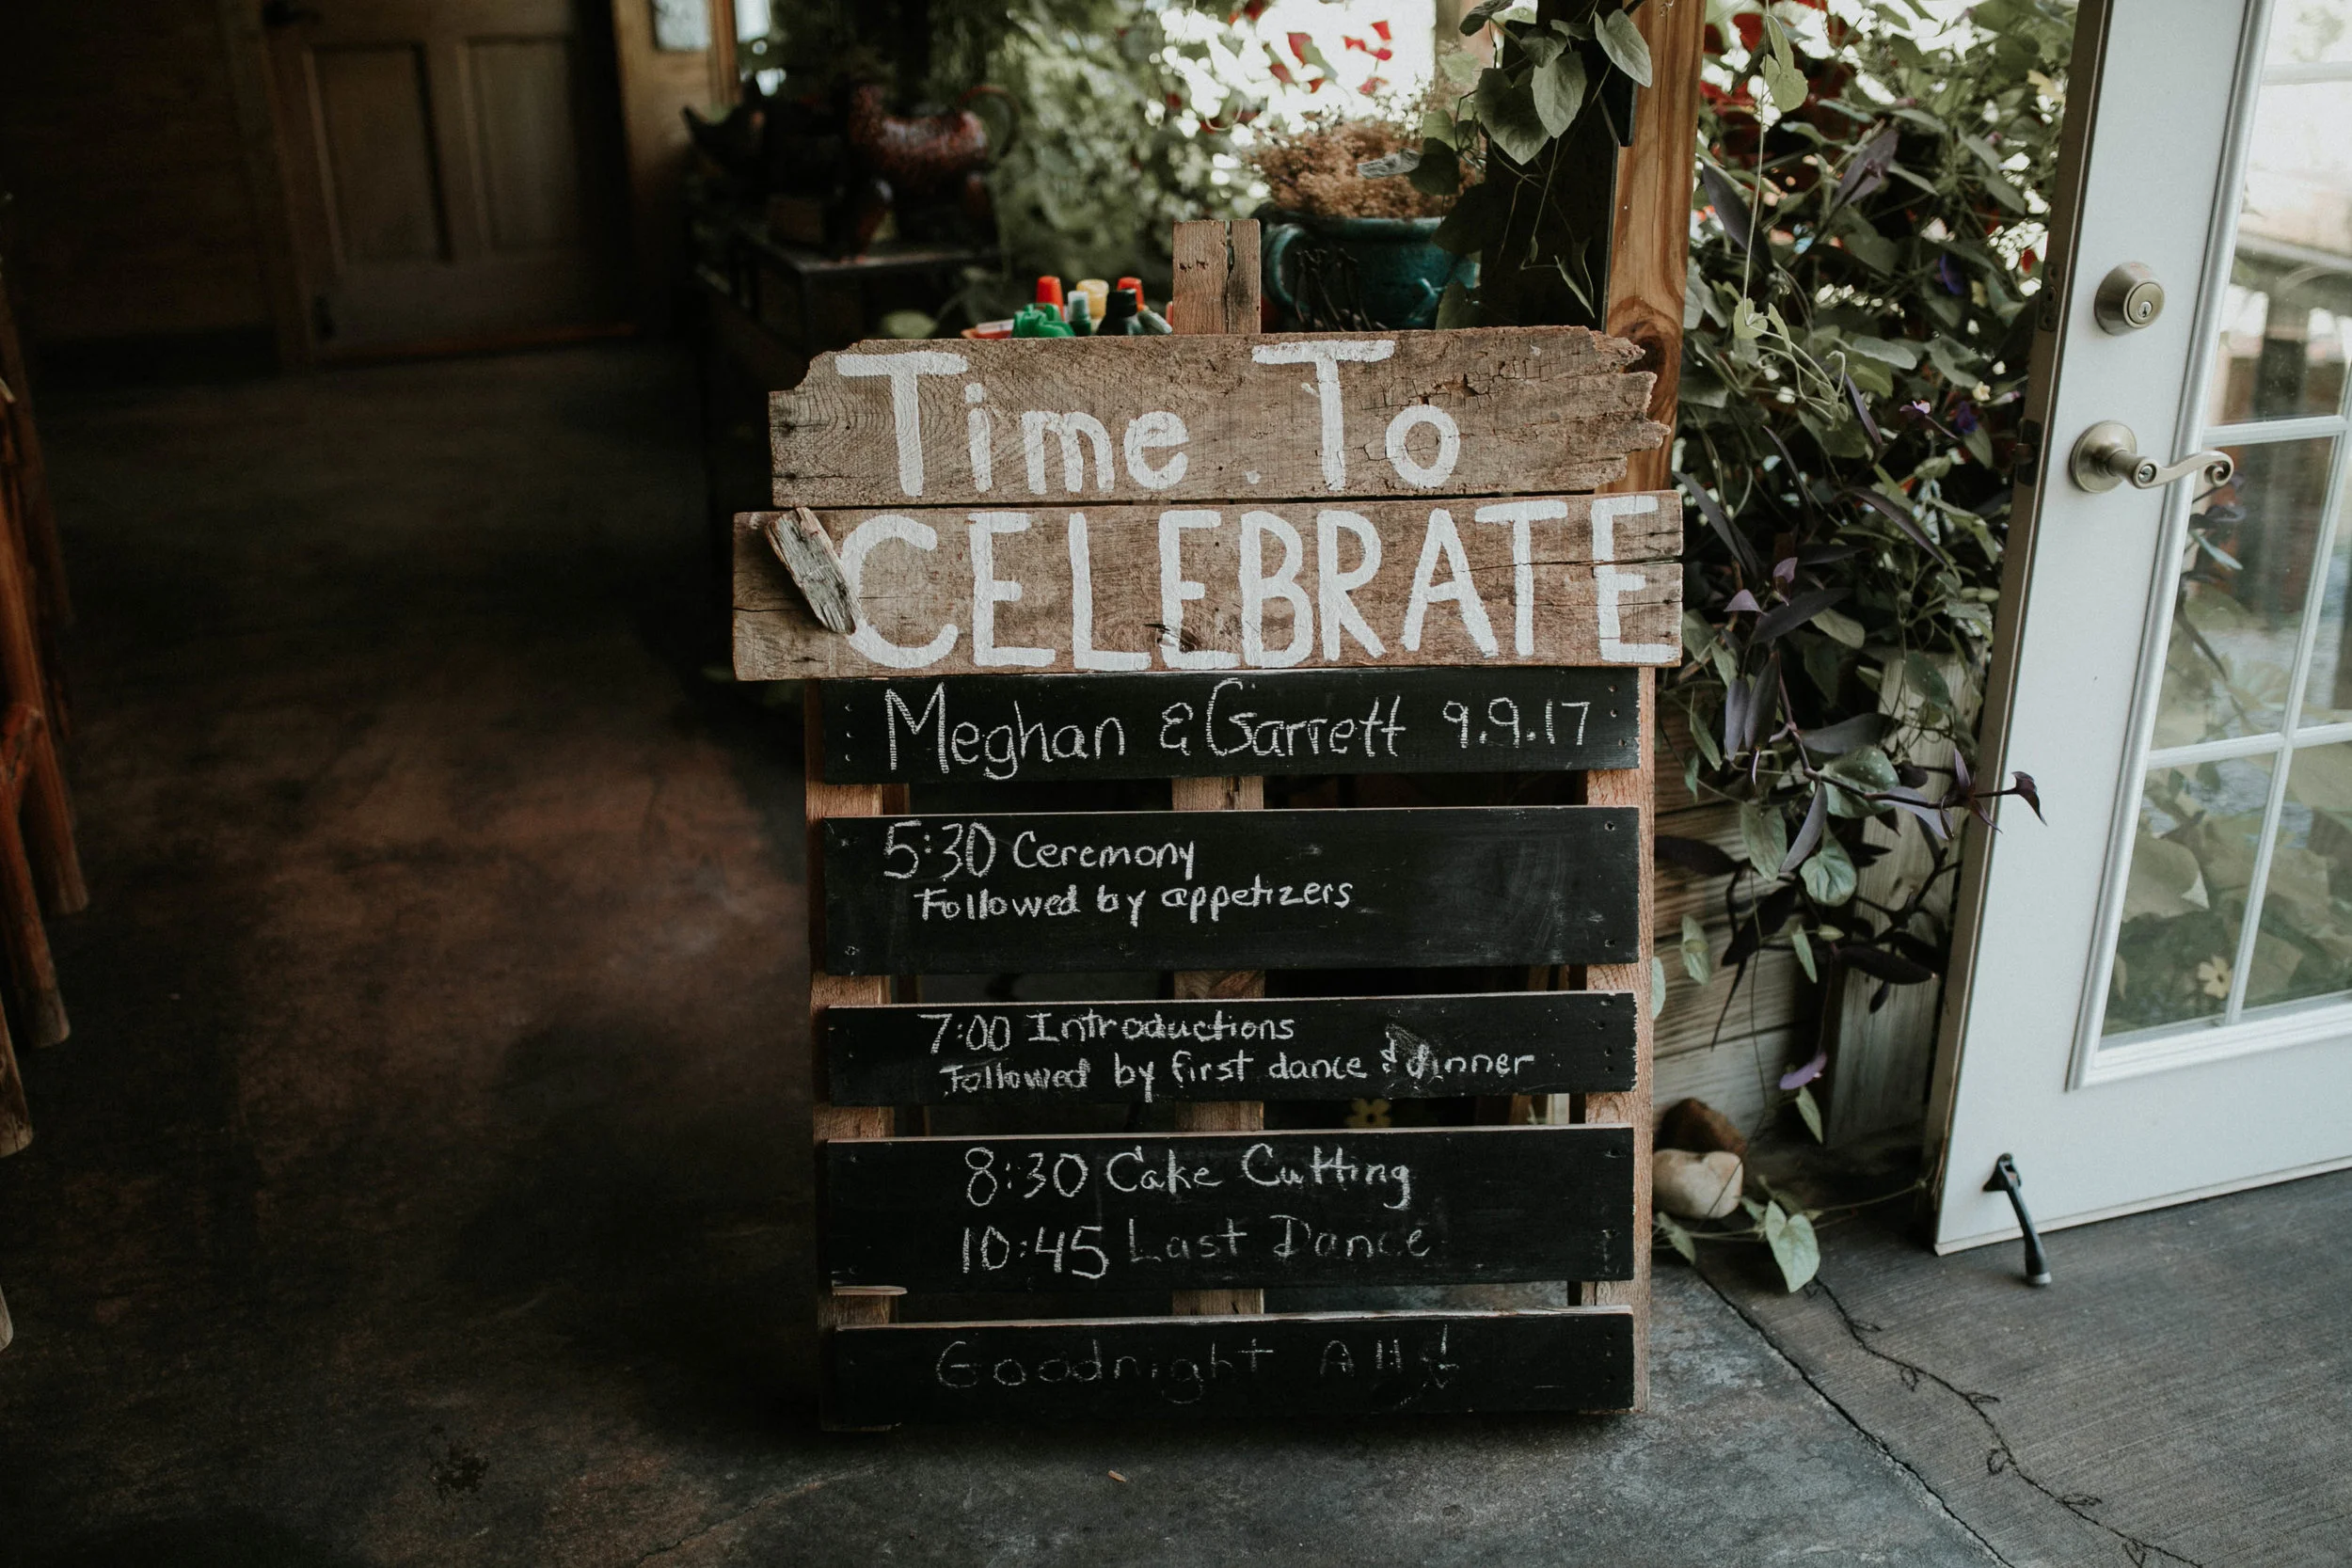 Time To
CELEBRATE
Meghan & Garrett 9.9.17
5:30 Ceremony
Followed by appetizers
7:00 Introductions
Followed by first dance & dinner
8:30 Cake Cutting
10:45 Last Dance
Goodnight All!